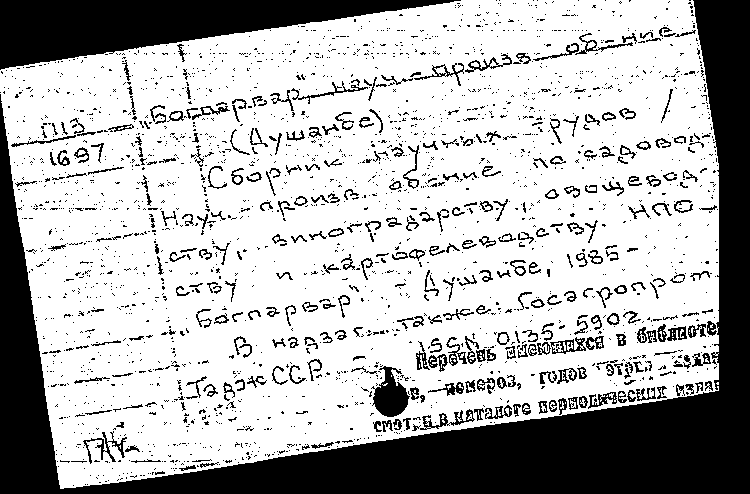 П13
1697
„Богпарвар", науч.-произв. об-ние
(Душанбе)
Сборник научных трудов /
Науч.-произв. об-ние по садовод-
ству, виноградарству, овощевод-
ству и картофелеводству. НПО
„Богпарвар". - Душанбе, 1985-
В надзаг. также: Госагропром
ТаджССР. - ISSN 0135-5902
Перечень имеющихся в библиоте
ов, номеров, годов этого издан
смотри в каталоге периодических издан